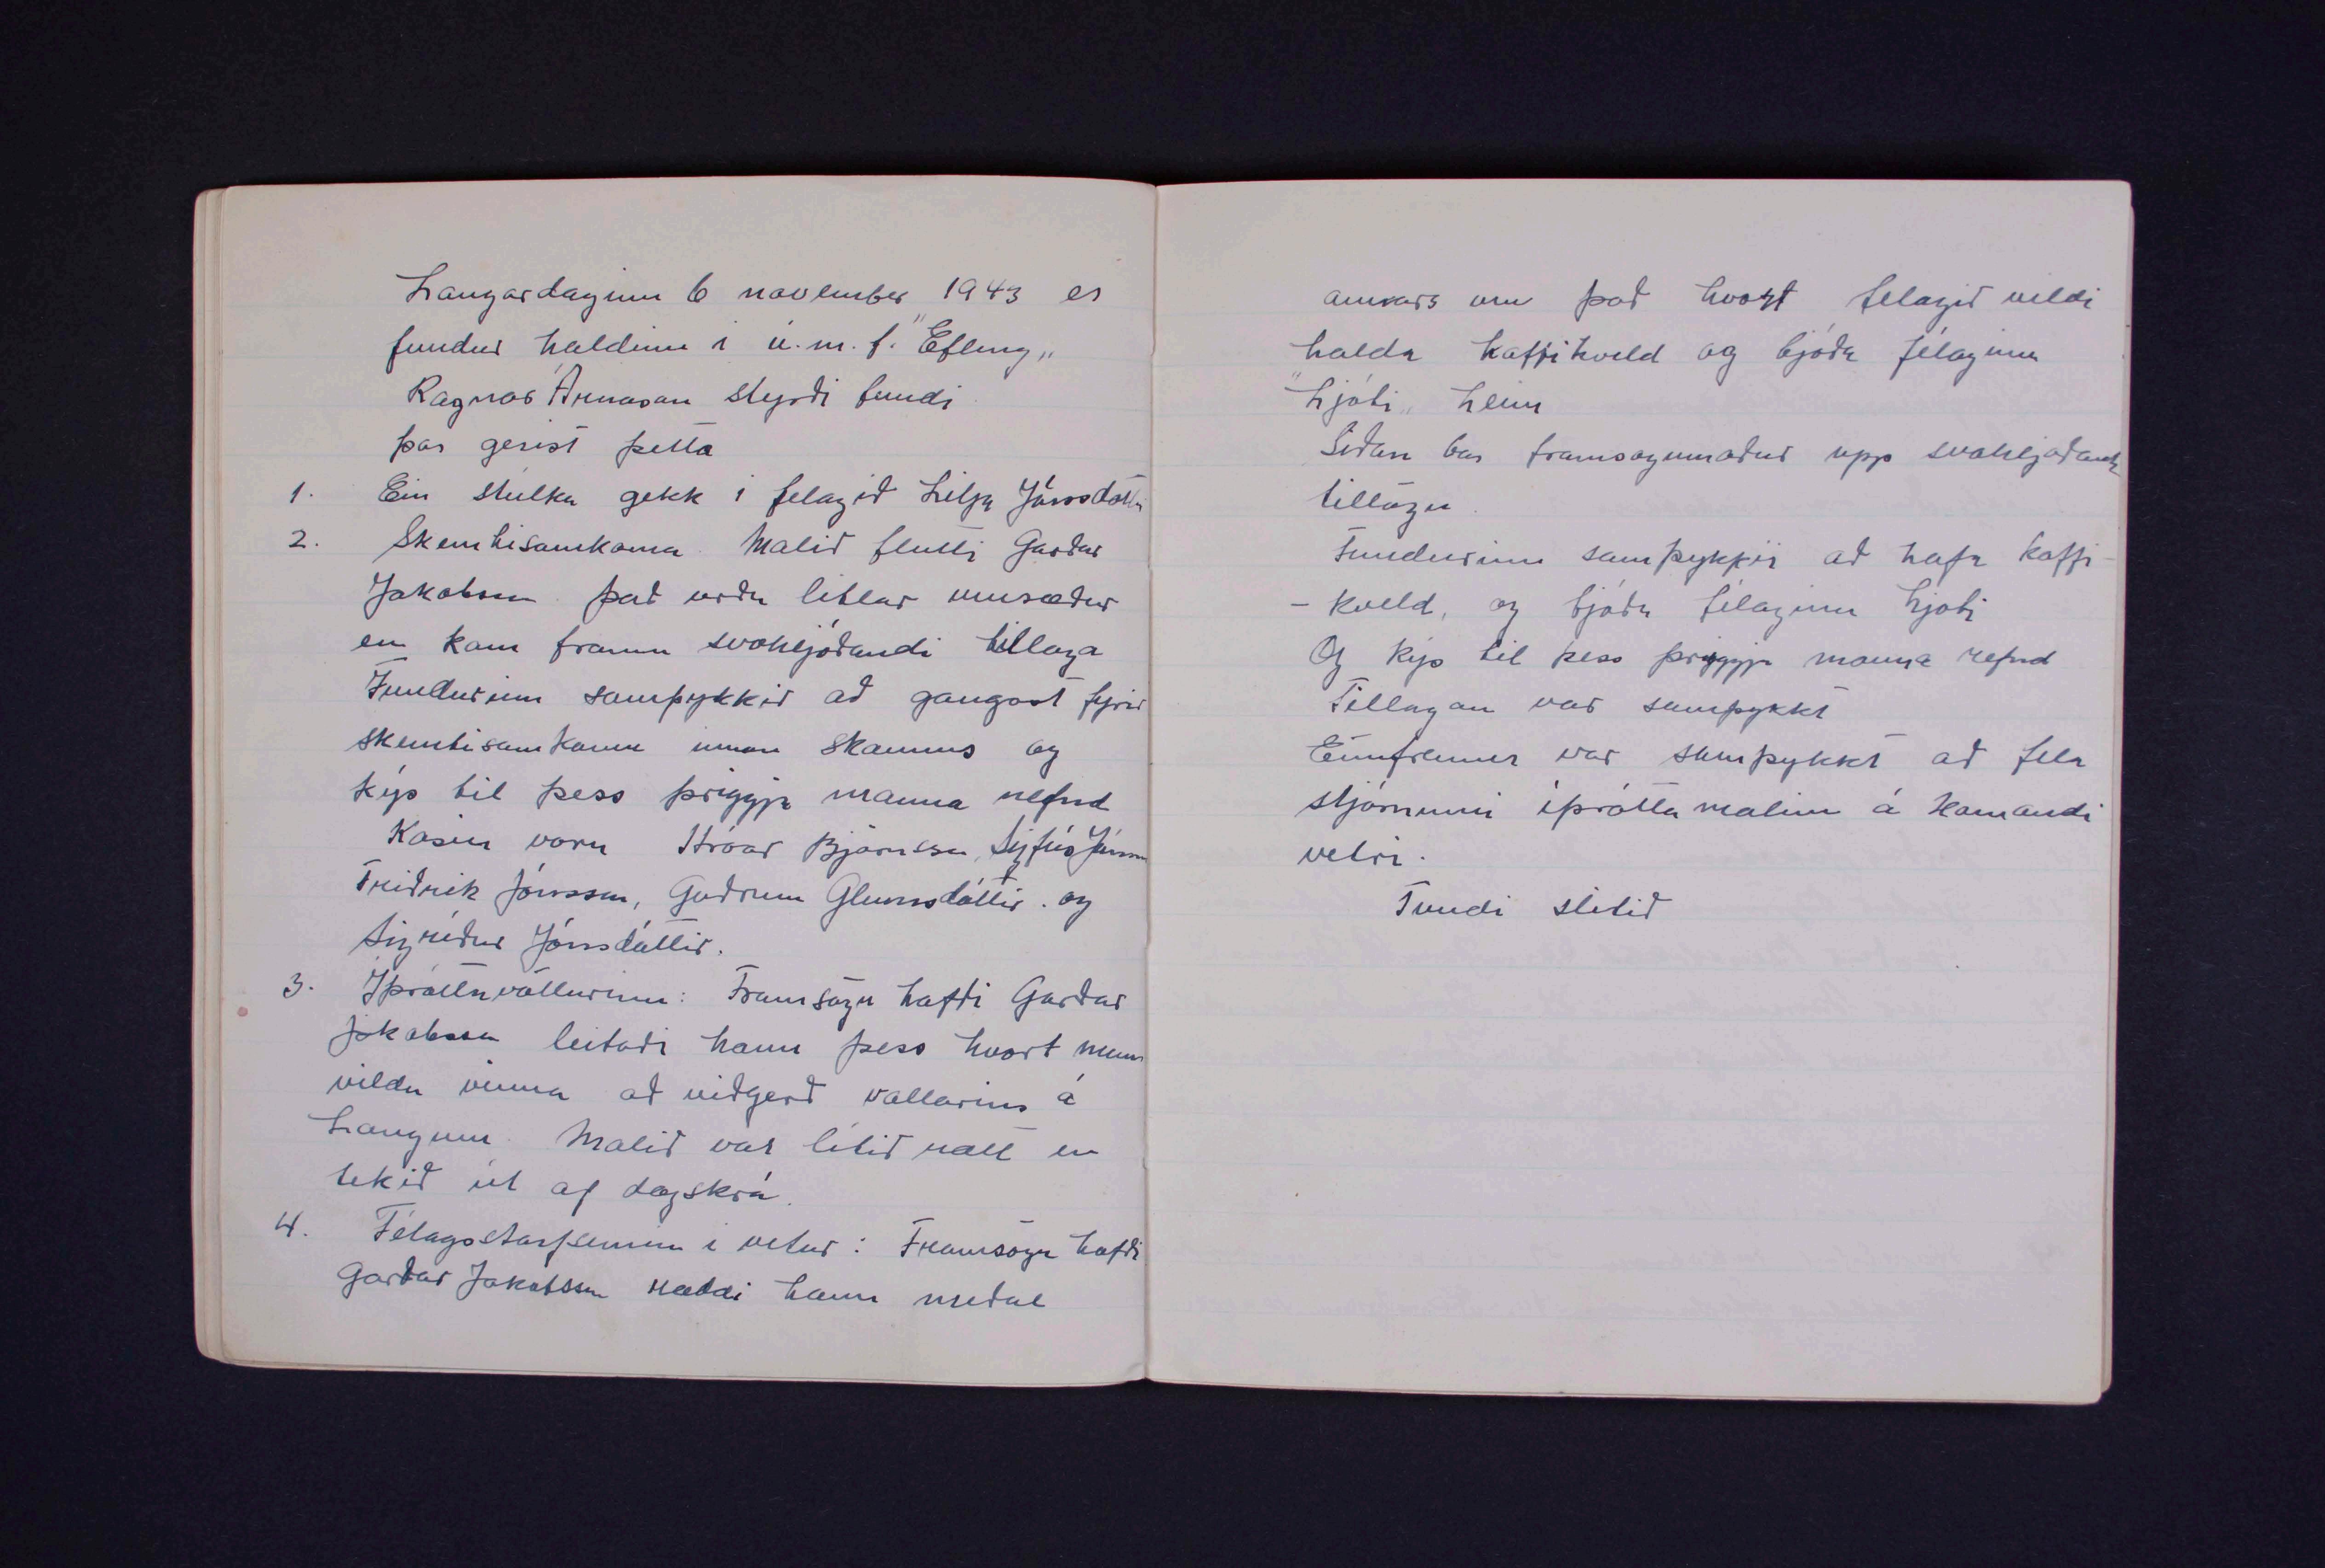 Laugardaginn 6 november 1943 er
fundur haldinn i u.m.f. "Efling„
Ragnar Árnason styrði fundi
þar gerist þetta
1. Ein stulka gekk i felagið Lilja Jónsdóttir
2. Skemtisamkoma. Malið flutti Garðar
Jakobson það urðu litlar umræður
en kom framm svohljóðandi tillaga
Fundurinn samþykkir að gangast fyrir
skemtisamkomu innan skamms og
kýs til þess þriggja manna nefnd
Kosin voru Hróar Björnsson, Sigfús Jónsson
Friðrik Jónsson, Guðrun Glumsdóttir. og
Sigriður Jónsdóttir.
3. Iþróttavöllurinn: Framsögu hafði Garðar
Jakobsson leitaði hann þess hvort menn
vildu vinna að viðgerð vallarins á
Laugum. Malið var lítið rætt en
tekið út af dagskrá.
4. Félagsstarfsemin i vetur: Framsögu hafði
Garðar Jakobsson ræddi hann meðal
annars um það hvort felagið vildi
halda kaffikveld og bjóða félaginu
"Ljóti„ heim
Siðan bar framsögumaður upp svohljoðandi
tillögu.
Fundurinn samþykkir að hafa kaffi-
- kveld, og bjóða félaginu Ljoti
Og kýs til þess þriggja manna nefnd
Tillagan var samþykkt
Ennfremur var samþykkt að fela
stjórninni iþrótta malin á komandi
vetri.
Fundi slitið